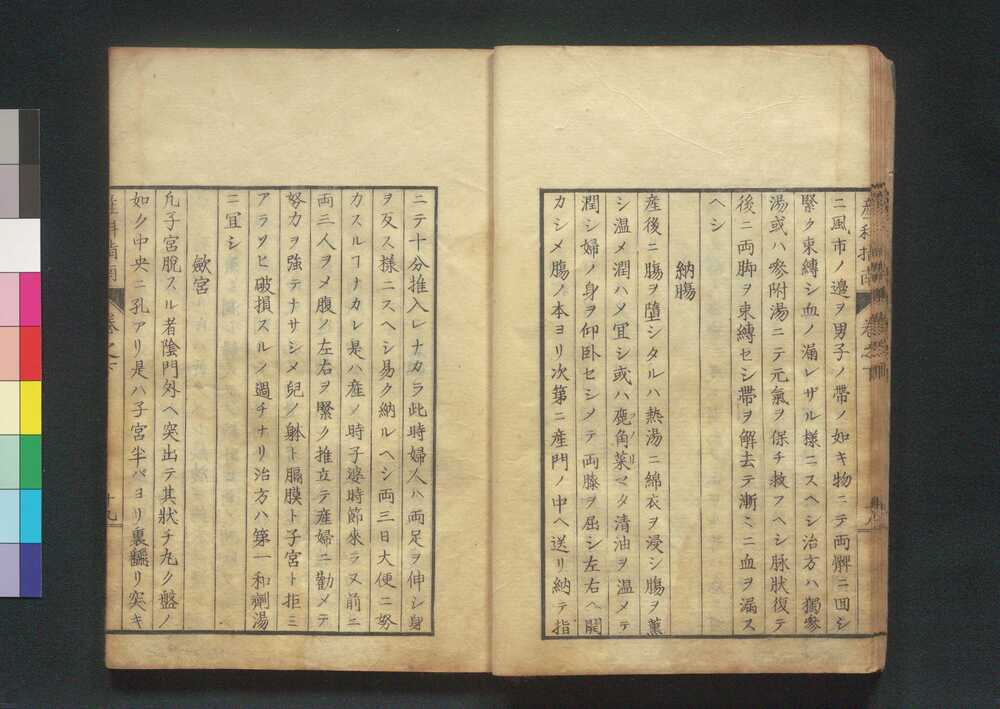 産科指南 巻之下
ニ風市ノ邊ヲ男子ノ帯ノ如キ物ニテ両髀ニ回シ
緊ク束縛シ血ノ漏レザル様ニスヘシ治方ハ獨參
湯或ハ參附湯ニテ元氣ヲ保チ救フヘシ脉狀復テ
後ニ両脚ヲ束縛セシ帶ヲ解去テ漸〻ニ血ヲ漏ス
ヘシ
納腸
産後ニ腸ヲ墮シタルハ熱湯ニ綿衣ヲ浸シ腸ヲ薫
シ温メ潤ハメ冝シ或ハ鹿角菜マタ清油ヲ温メテ
潤シ婦ノ身ヲ仰卧セシメテ両膝ヲ屈シ左右ヘ開
カシメ腸ノ本ヨリ次第ニ産門ノ中ヘ送リ納テ指
ニテ十分推入レナカラ此時婦人ハ両足ヲ伸シ身
ヲ反ス様ニスヘシ易ク納ルヘシ両三日大便ニ努
カスルヿナカレ是ハ産ノ時子婆時節來ラヌ前ニ
両三人ヲメ腹ノ左右ヲ緊ク推立テ産婦ニ勸メテ
努力ヲ強テナサシメ兒ノ躰ト膈膜ト子宮ト拒ミ
アラソヒ破損スルノ過チナリ治方ハ第一和劑湯
ニ冝シ
斂宮
凡子宮脱スル者陰門外ヘ突出テ其狀チ丸ク盤ノ
如ク中央ニ孔アリ是ハ子宮半バヨリ裏飜リ突キ
産科指南 巻之下 十九